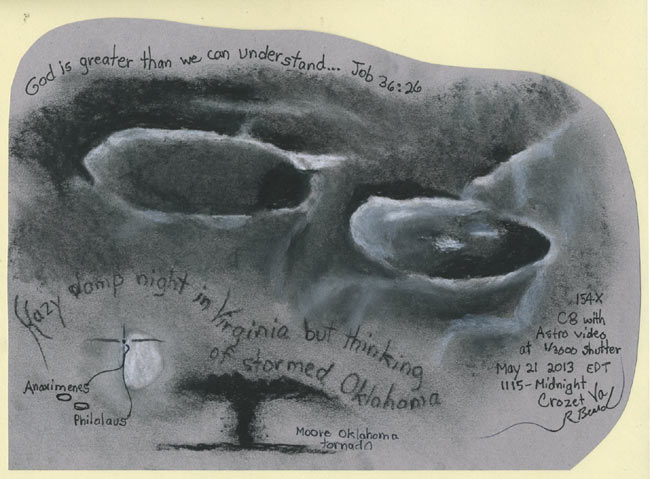 God is greater than we can understand... Job 36:26
Hazy damp night in Virginia but thinking
of stormed Oklahoma
154X
C8 with
Astro video
at 1/2000 shutter
May 21 2013 EDT
1115-Midnight
Crozet Va
Anaximenes
Philolaus
Moore Oklahoma
tornado